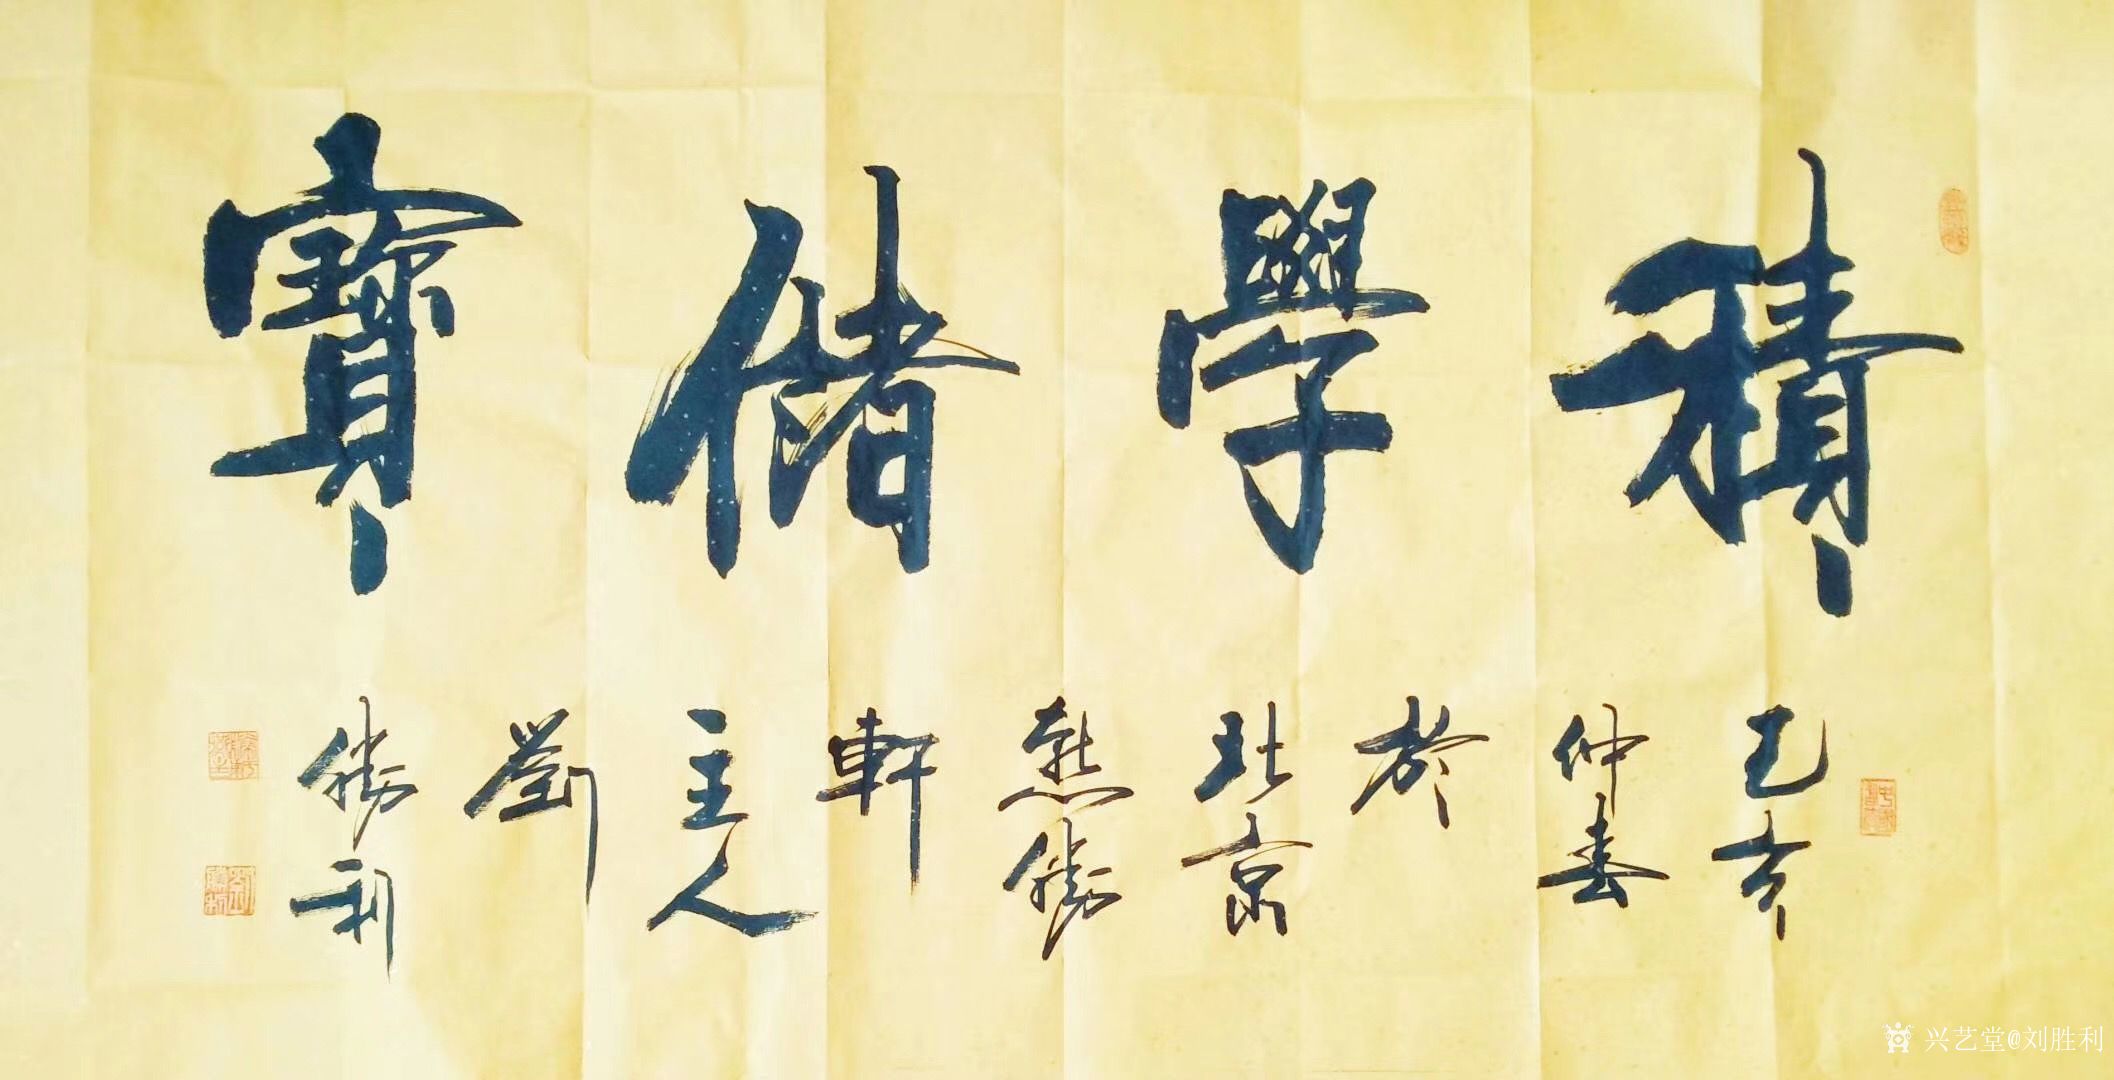 積學儲寶
己亥仲春於北京熊勝軒主人劉勝利
兴艺堂@刘胜利